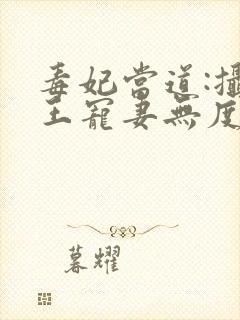 毒妃當道:攝
王寵妻無度
暮耀